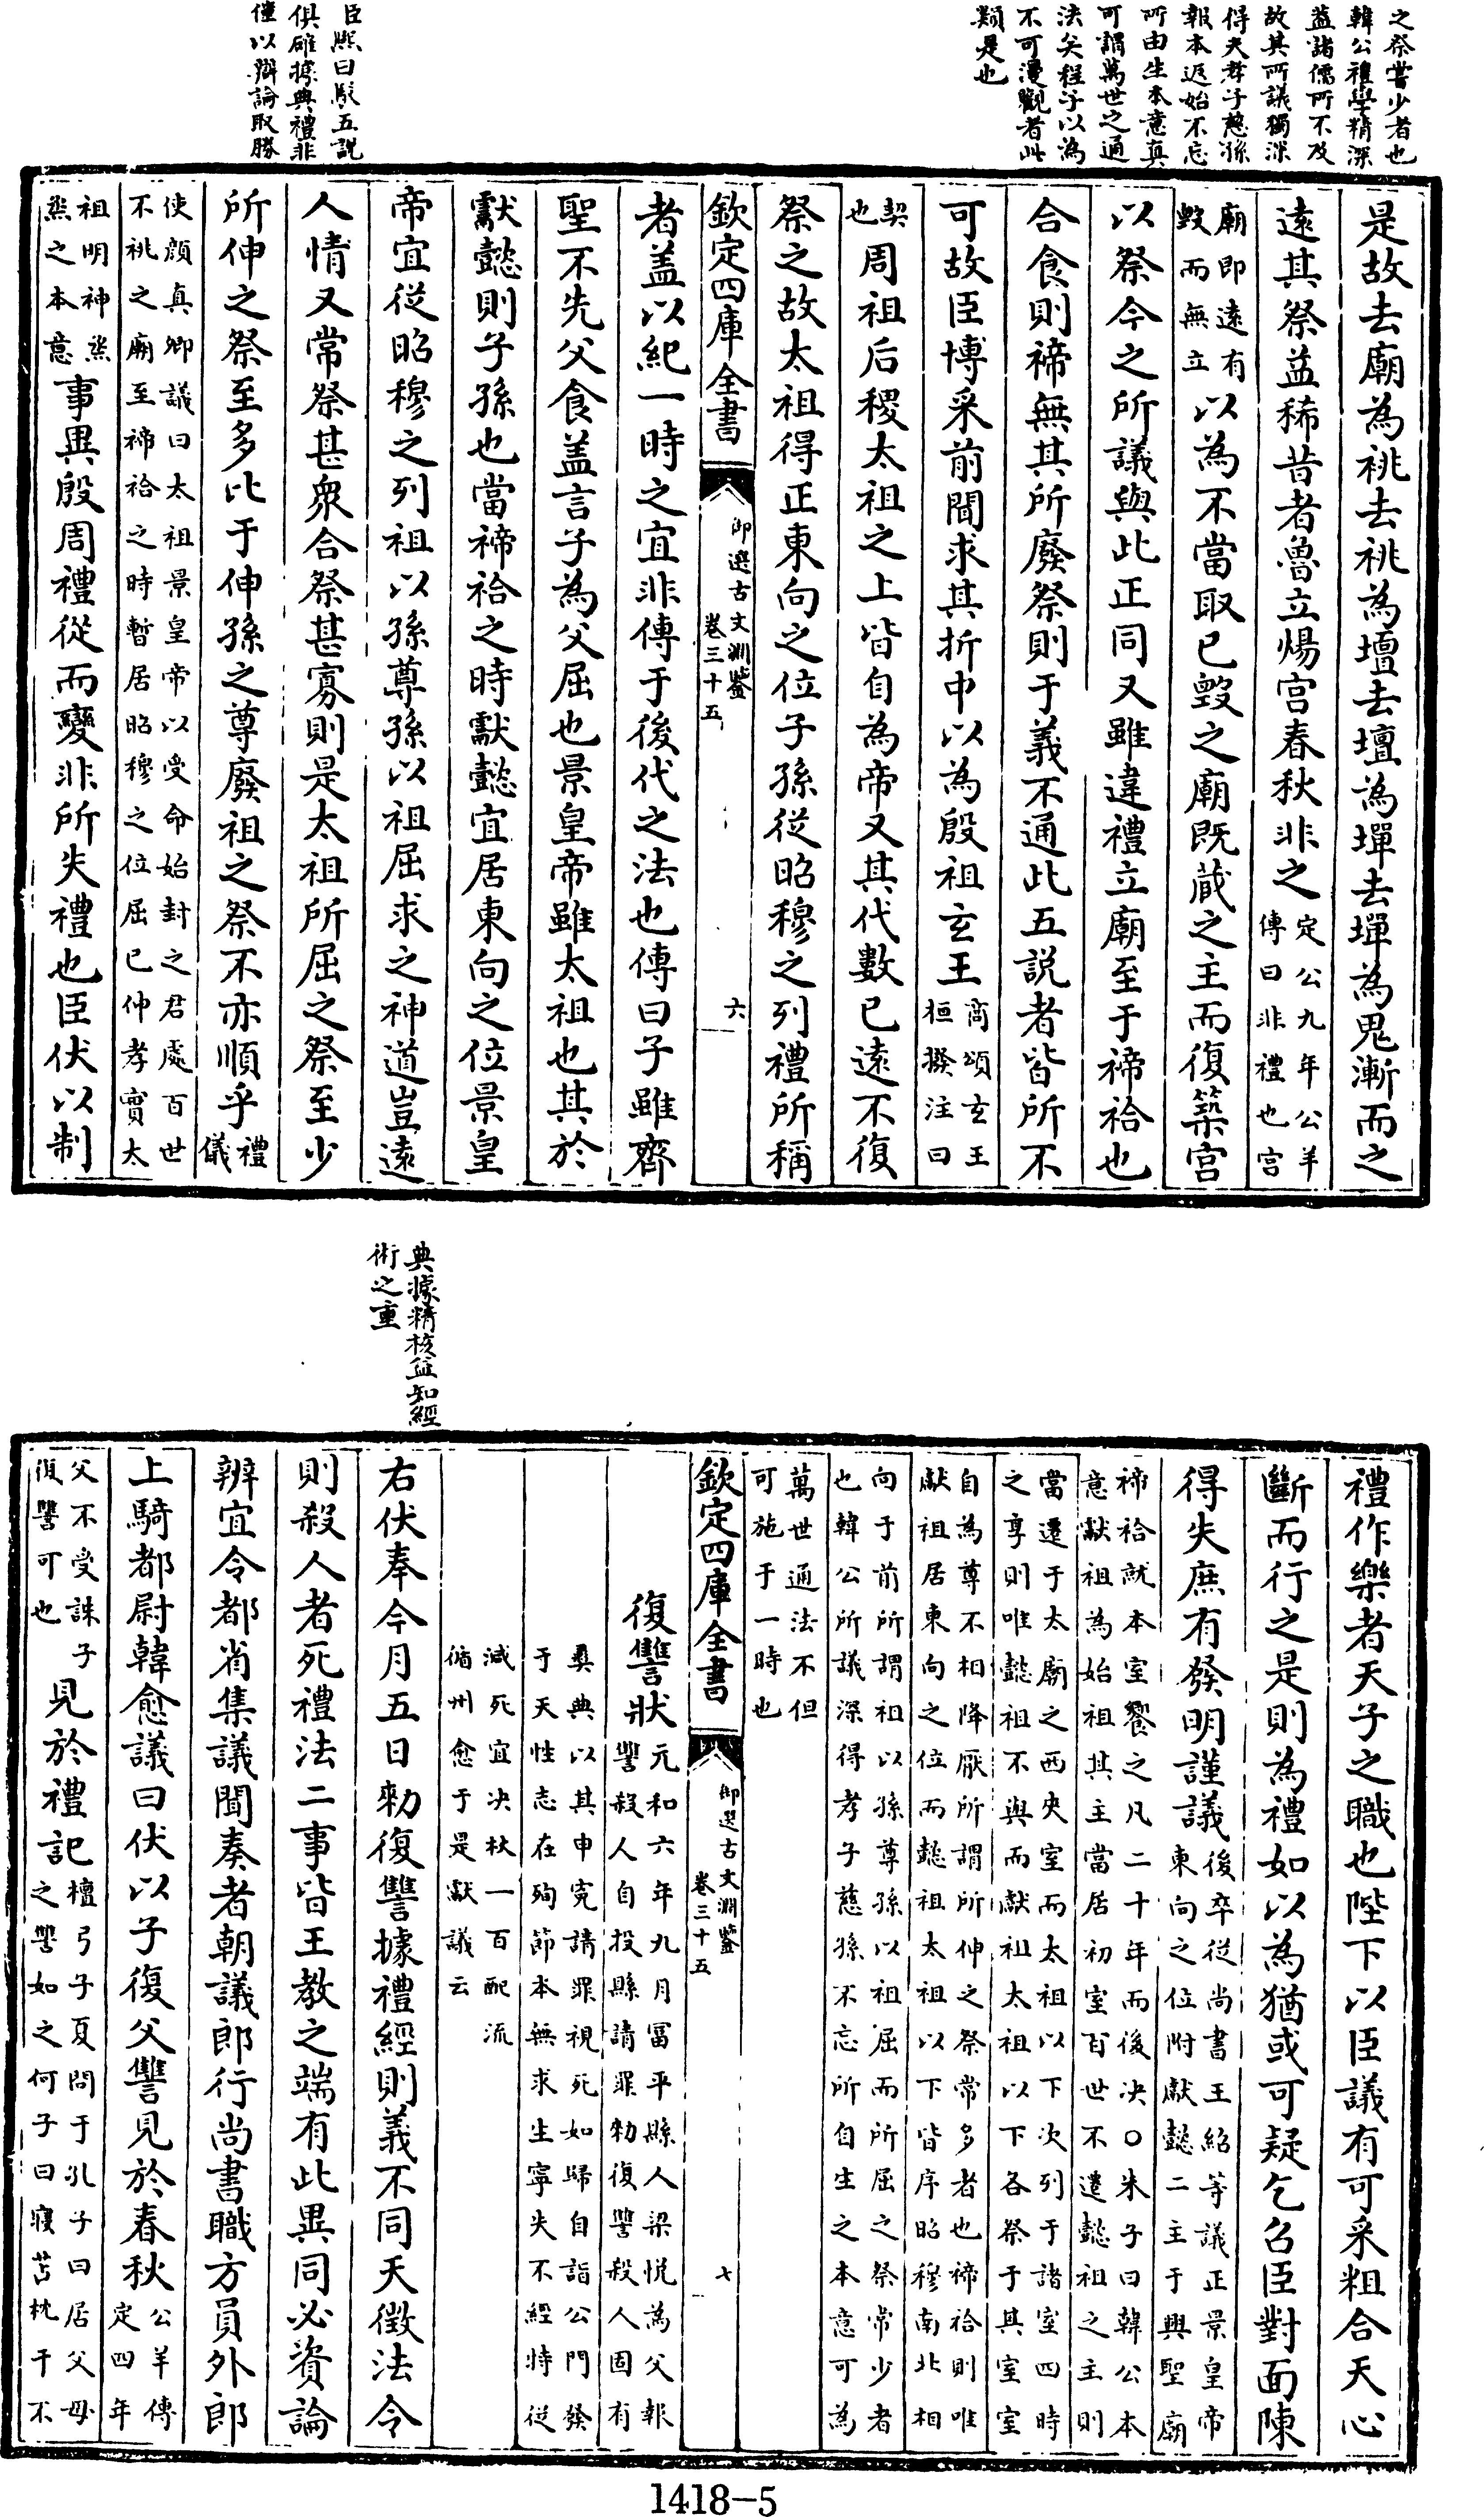 之祭嘗少者也
韓公禮學精深
蓋諸儒所不及
故其所議獨深
得夫孝子慈孫
報本返始不忘
所由生本意真
可謂萬世之通
法矣程子以為
不可漫觀者此
類是也
臣熙曰駁五說
俱確據典禮非
僅以辯論取勝
是故去廟為祧去祧為壇去壇為墠去墠為鬼漸而之
遠其祭益稀昔者魯立煬宮春秋非之定公九年公羊傳曰非禮也宮
廟即遠有毀而無立以為不當取已毀之廟既藏之主而復築宮
以祭今之所議與此正同又雖違禮立廟至于禘祫也
合食則禘無其所廢祭則于義不通此五說者皆所不
可故臣博采前聞求其折中以為殷祖玄王商頌玄王桓撥注曰
契也周祖后稷太祖之上皆自為帝又其代數已遠不復
祭之故太祖得正東向之位子孫從昭穆之列禮所稱
欽定四庫全書
御選古文淵鑒
卷三十五
六
者蓋以紀一時之宜非傳于後代之法也傳曰子雖齊
聖不先父食蓋言子為父屈也景皇帝雖太祖也其於
獻懿則子孫也當禘祫之時獻懿宜居東向之位景皇
帝宜從昭穆之列祖以孫尊孫以祖屈求之神道豈遠
人情又常祭甚衆合祭甚寡則是太祖所屈之祭至少
所伸之祭至多比于伸孫之尊廢祖之祭不亦順乎禮儀
使顏真卿議曰太祖景皇帝以受命始封之君處百世不祧之廟至禘祫之時暫居昭穆之位屈已伸孝實太
祖明神烝烝之本意事異殷周禮從而變非所失禮也臣伏以制
典據精核益知經
術之重
禮作樂者天子之職也陛下以臣議有可采粗合天心
斷而行之是則為禮如以為猶或可疑乞召臣對面陳
得失庶有發明謹議後卒從尚書王紹等議正景皇帝東向之位附獻懿二主于興聖廟
禘祫就本室饗之凡二十年而後決○朱子曰韓公本意獻祖為始祖其主當居初室百世不遷懿祖之主則
當遷于太廟之西夾室而太祖以下次列于諸室四時之享則唯懿祖不與而獻祖太祖以下各祭于其室室
自為尊不相降厭所謂所伸之祭常多者也禘祫則唯獻祖居東向之位而懿祖太祖以下皆序昭穆南北相
向于前所謂祖以孫尊孫以祖屈而所屈之祭常少者也韓公所議深得孝子慈孫不忘所自生之本意可為
萬世通法不但可施于一時也
欽定四庫全書
御選古文淵鑒
卷三十五
七
復讐狀元和六年九月富平縣人梁悅為父報讐殺人自投縣請罪勑復讐殺人固有
彛典以其申寃請罪視死如歸自詣公門發于天性志在殉節本無求生寧失不經特從
減死宜決杖一百配流循州愈于是獻議云
右伏奉今月五日勑復讐據禮經則義不同天徵法令
則殺人者死禮法二事皆王教之端有此異同必資論
辨宜令都省集議聞奏者朝議郎行尚書職方員外郎
上騎都尉韓愈議曰伏以子復父讐見於春秋公羊傳定四年
父不受誅子復讐可也見於禮記檀弓子夏問于孔子曰居父母之讐如之何子曰寢苫枕干不
1418-5